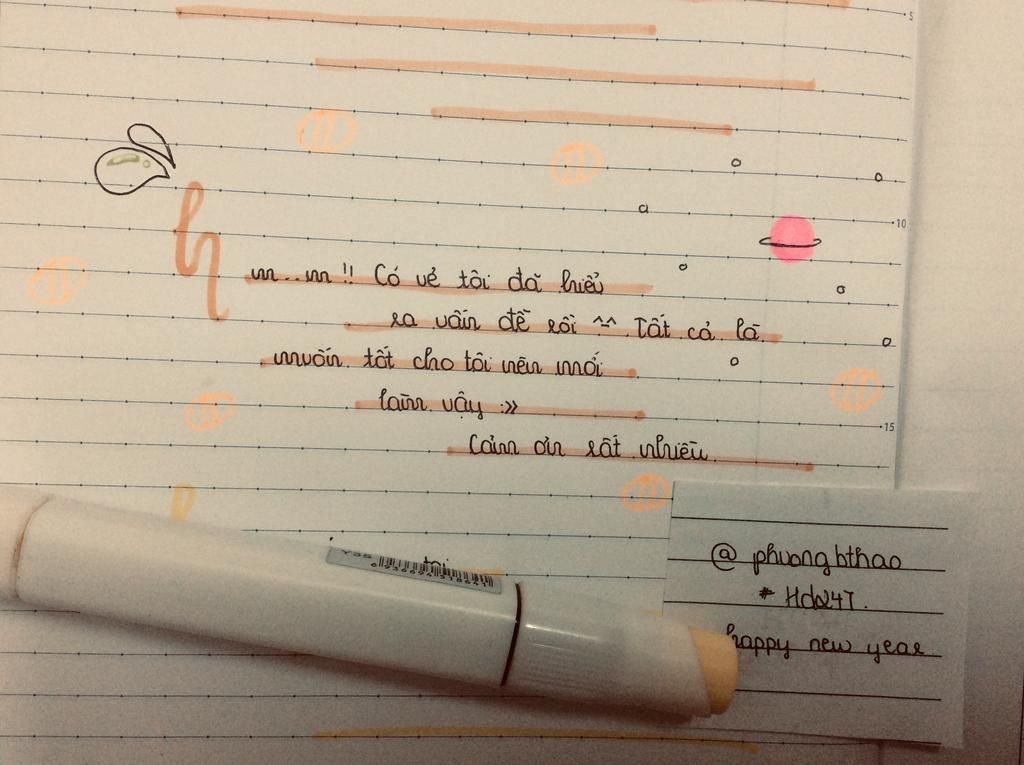 5
10
hm..m !! Có vẻ tôi đã hiểu
ra vấn đề rồi ^-^ Tất cả là
muốn tốt cho tôi nên mới
làm vậy :>>
15
Cảm ơn rất nhiều
@ phuongbthao
* Hd247.
happy new year
Y35